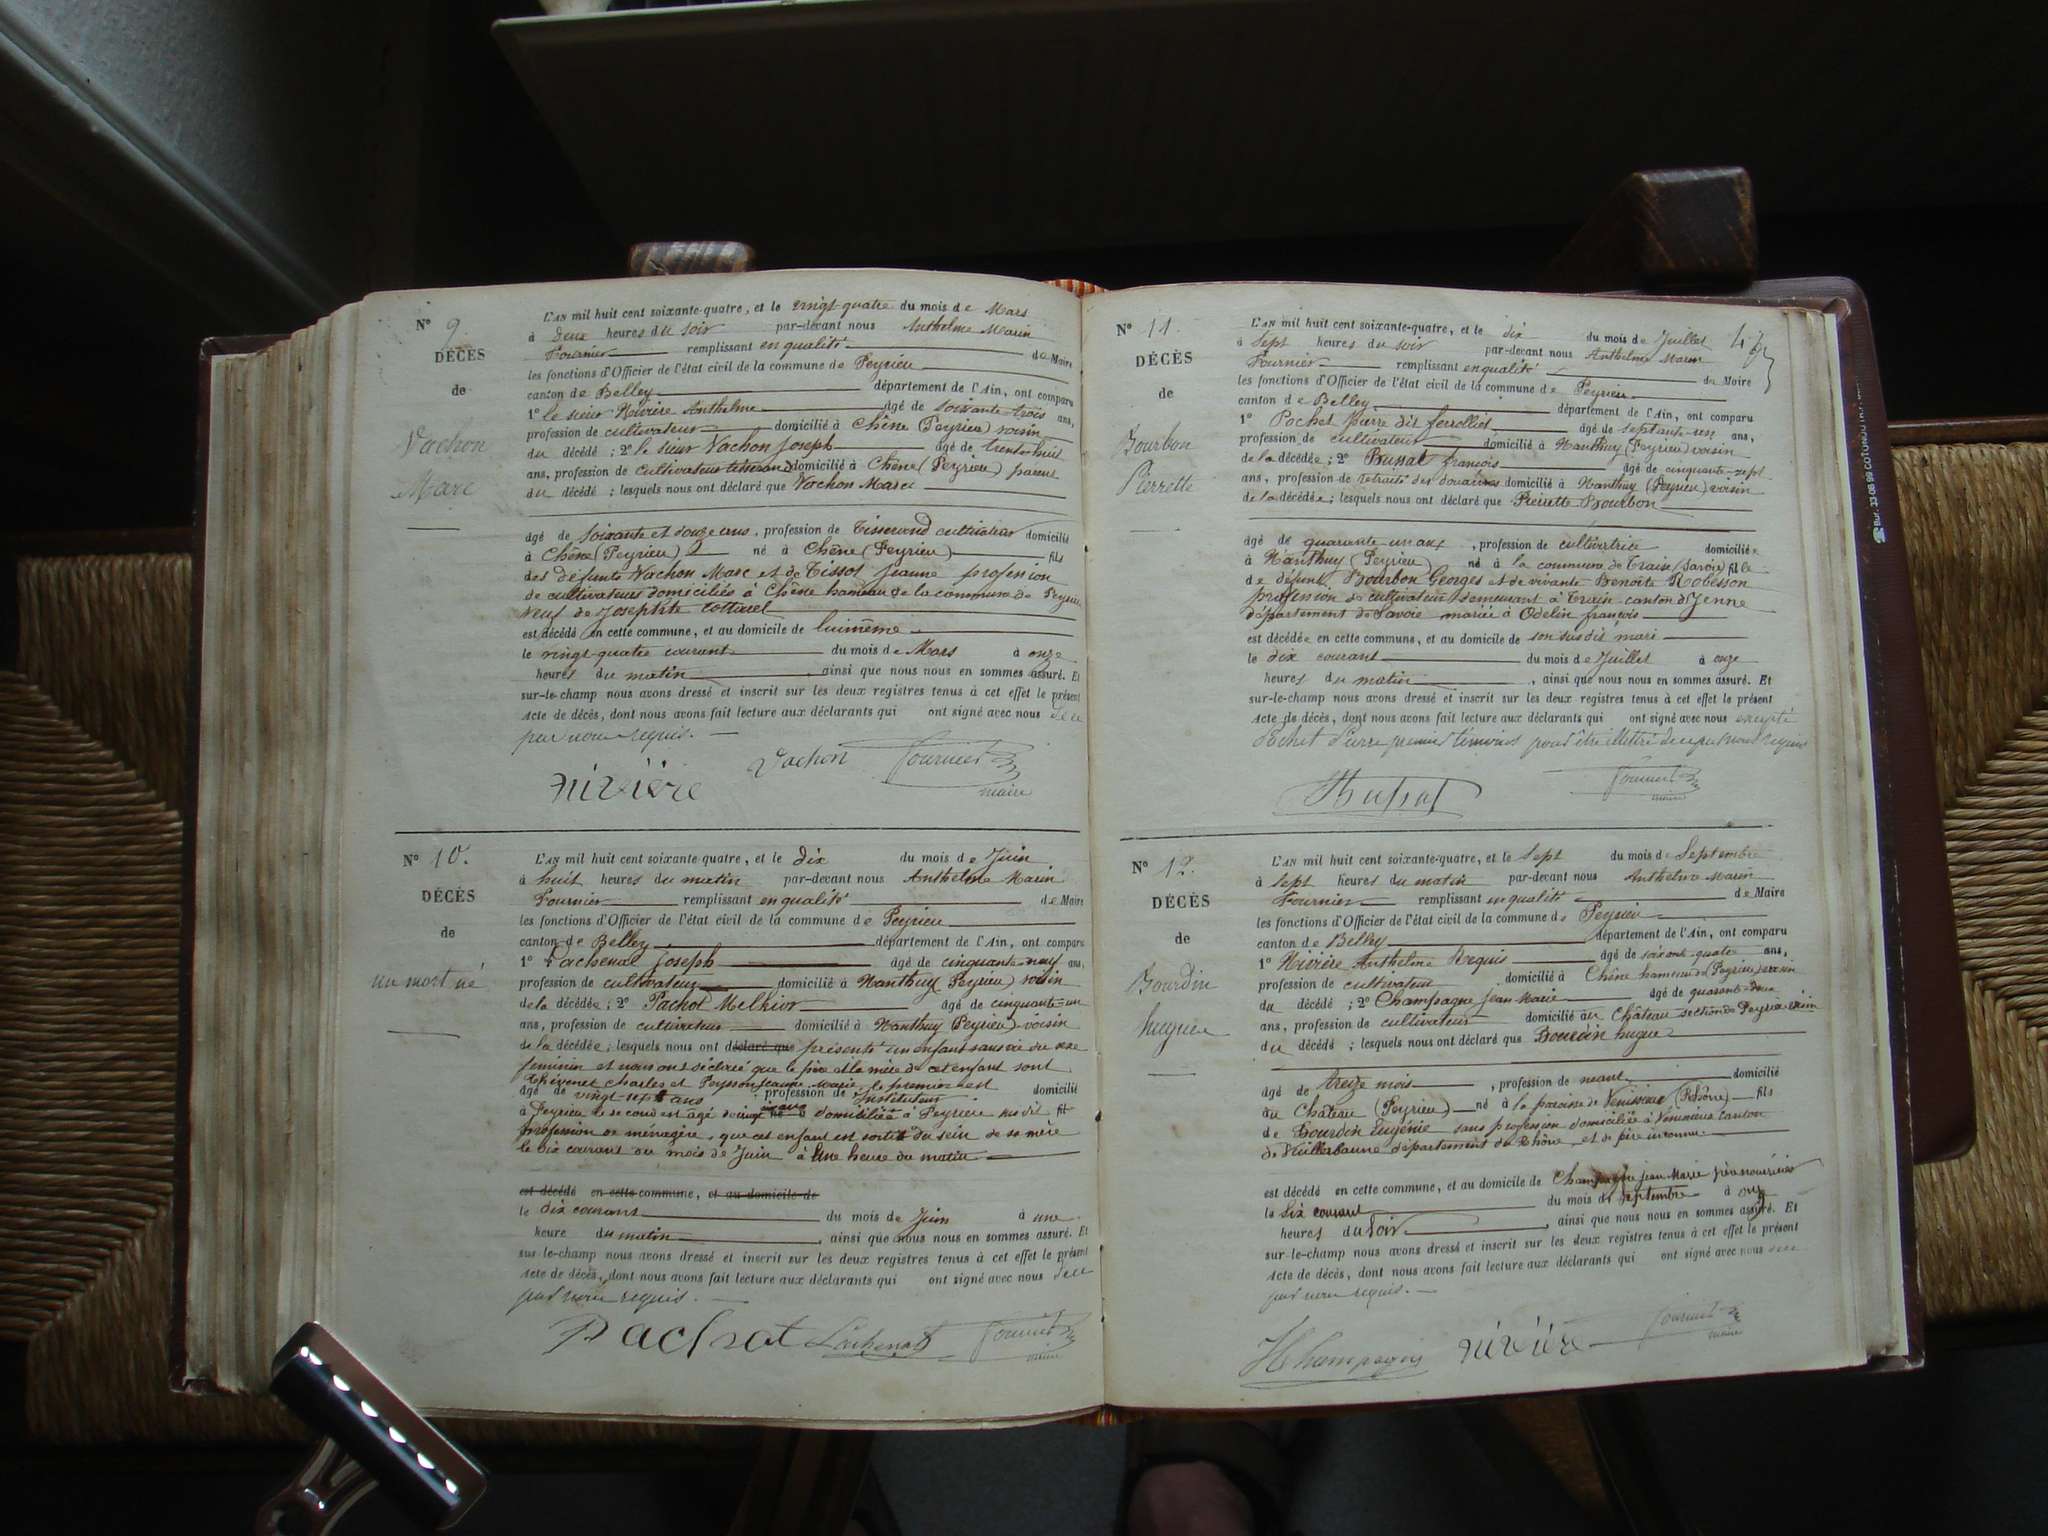 N° 9.
DÉCÈS
de
Vachon
Marc
L'AN mil huit cent soixante-quatre, et le vingt quatre du mois de Mars
à deux heures du soir par-devant nous Anthelme Marin
Fournier remplissant en qualité de Maire
les fonctions d'Officier de l'état civil de la commune de Peyrieu
canton de Belley département de l'Ain, ont comparu
1° le sieur Rivière Anthelme âgé de soixante-trois ans,
profession de cultivateur domicilié à Chêne (Peyrieu) voisin
du décédé ; 2° le sieur Vachon Joseph âgé de trente huit
ans, profession de cultivateur tisserand domicilié à Chêne (Peyrieu) parent
du décédé ; lesquels nous ont déclaré que Vachon Marc
âgé de soixante et douze ans, profession de Tisserand cultivateur domicilié
à Chêne (Peyrieu) né à Chêne (Peyrieu) fils
des défunts Vachon Marc et de Tissot Jeanne profession
de cultivateurs domiciliés à Chêne hameau de la commune de Peyrieu
veuf de Josephte Cottarel
est décédé en cette commune, et au domicile de lui même
le vingt-quatre courant du mois de Mars à onze
heures du matin, ainsi que nous nous en sommes assuré. Et
sur-le-champ nous avons dressé et inscrit sur les deux registres tenus à cet effet le présent
acte de décès, dont nous avons fait lecture aux déclarants qui ont signé avec nous de ce
par nous requis.
Rivière Vachon Fournier
maire
N° 10.
DÉCÈS
de
un mort né
L'AN mil huit cent soixante-quatre, et le dix du mois de Juin
à huit heures du matin par-devant nous Anthelme Marin
Fournier remplissant en qualité de Maire
les fonctions d'Officier de l'état civil de la commune de Peyrieu
canton de Belley département de l'Ain, ont comparu
1° Lachenal Joseph âgé de cinquante-neuf ans,
profession de cultivateur domicilié à Nanthuy (Peyrieu) voisin
de la décédée ; 2° Pachot Melkior âgé de cinquante-un
ans, profession de cultivateur domicilié à Nanthuy (Peyrieu) voisin
de la décédée ; lesquels nous ont déclaré que présenté un enfant sans vie du sexe
féminin et nous ont déclaré que le père et la mère de cet enfant sont
Thévenet Charles et Peysson Jeanne Marie, le premier est
âgé de vingt-sept ans, profession de Instituteur domicilié
à Peyrieu la seconde est âgé de vingt ans domiciliée à Peyrieu fil
profession de ménagère, que cet enfant est sortit du sein de sa mère
le dix courant du mois de Juin à une heure du matin
est décédé en cette commune, et au domicile de
le dix courant du mois de Juin à une
heure du matin, ainsi que nous nous en sommes assuré. Et
sur-le-champ nous avons dressé et inscrit sur les deux registres tenus à cet effet le présent
acte de décès, dont nous avons fait lecture aux déclarants qui ont signé avec nous de ce
par nous requis.
Pachot Lachenal Fournier
maire
N° 11.
DÉCÈS
de
Bourbon
Pierrette
L'AN mil huit cent soixante-quatre, et le dix du mois de Juillet
à sept heures du soir par-devant nous Anthelme Marin
Fournier remplissant en qualité de Maire
les fonctions d'Officier de l'état civil de la commune de Peyrieu
canton de Belley département de l'Ain, ont comparu
1° Pochet Pierre dit Ferrolliet âgé de septante-un ans,
profession de cultivateur domicilié à Nanthuy (Peyrieu) voisin
de la décédée ; 2° Bussat françois âgé de cinquante-sept
ans, profession de retraité des douaines domicilié à Nanthuy (Peyrieu) voisin
de la décédée ; lesquels nous ont déclaré que Pierrette Bourbon
âgé de quarante un ans, profession de cultivatrice domiciliée
à Nanthuy (Peyrieu) né à la commune de Traise (Savoie) fille
de défunt Bourbon Georges et de vivante Benoîte Robesson
profession de cultivateur demeurant à Traise canton d'Yenne
département de Savoie mariée à Odelin françois
est décédée en cette commune, et au domicile de son susdit mari
le dix courant du mois de Juillet à onze
heures du matin, ainsi que nous nous en sommes assuré. Et
sur-le-champ nous avons dressé et inscrit sur les deux registres tenus à cet effet le présent
acte de décès, dont nous avons fait lecture aux déclarants qui ont signé avec nous excepté
Pochet Pierre premier témoin pour être illétré de ce par nous requis
Bussat Fournier
maire
N° 12.
DÉCÈS
de
Bourdin
hugue
L'AN mil huit cent soixante-quatre, et le sept du mois de Septembre
à sept heures du matin par-devant nous Anthelme Marin
Fournier remplissant en qualité de Maire
les fonctions d'Officier de l'état civil de la commune de Peyrieu
canton de Belley département de l'Ain, ont comparu
1° Rivière Anthelme Requis âgé de soixant-quatre ans,
profession de cultivateur domicilié à Chêne hameau de (Peyrieu) voisin
du décédé ; 2° Champagne Jean Marie âgé de quarante-deux
ans, profession de cultivateur domicilié au Château section de Peyrieu voisin
du décédé ; lesquels nous ont déclaré que Bourdin hugue
âgé de treize mois, profession de néant domicilié
au Château (Peyrieu) né à la paroisse de Venissieux (Rhône) fils
de Bourdin Eugénie sans profession domiciliée à Venissieux canton
de Villeurbanne département du Rhône et de père inconnu
est décédé en cette commune, et au domicile de Champagne Jean Marie père nourricier
le six courant du mois de Septembre à onze
heures du soir, ainsi que nous nous en sommes assuré. Et
sur-le-champ nous avons dressé et inscrit sur les deux registres tenus à cet effet le présent
acte de décès, dont nous avons fait lecture aux déclarants qui ont signé avec nous de ce
par nous requis.
Champagne Rivière Fournier
maire